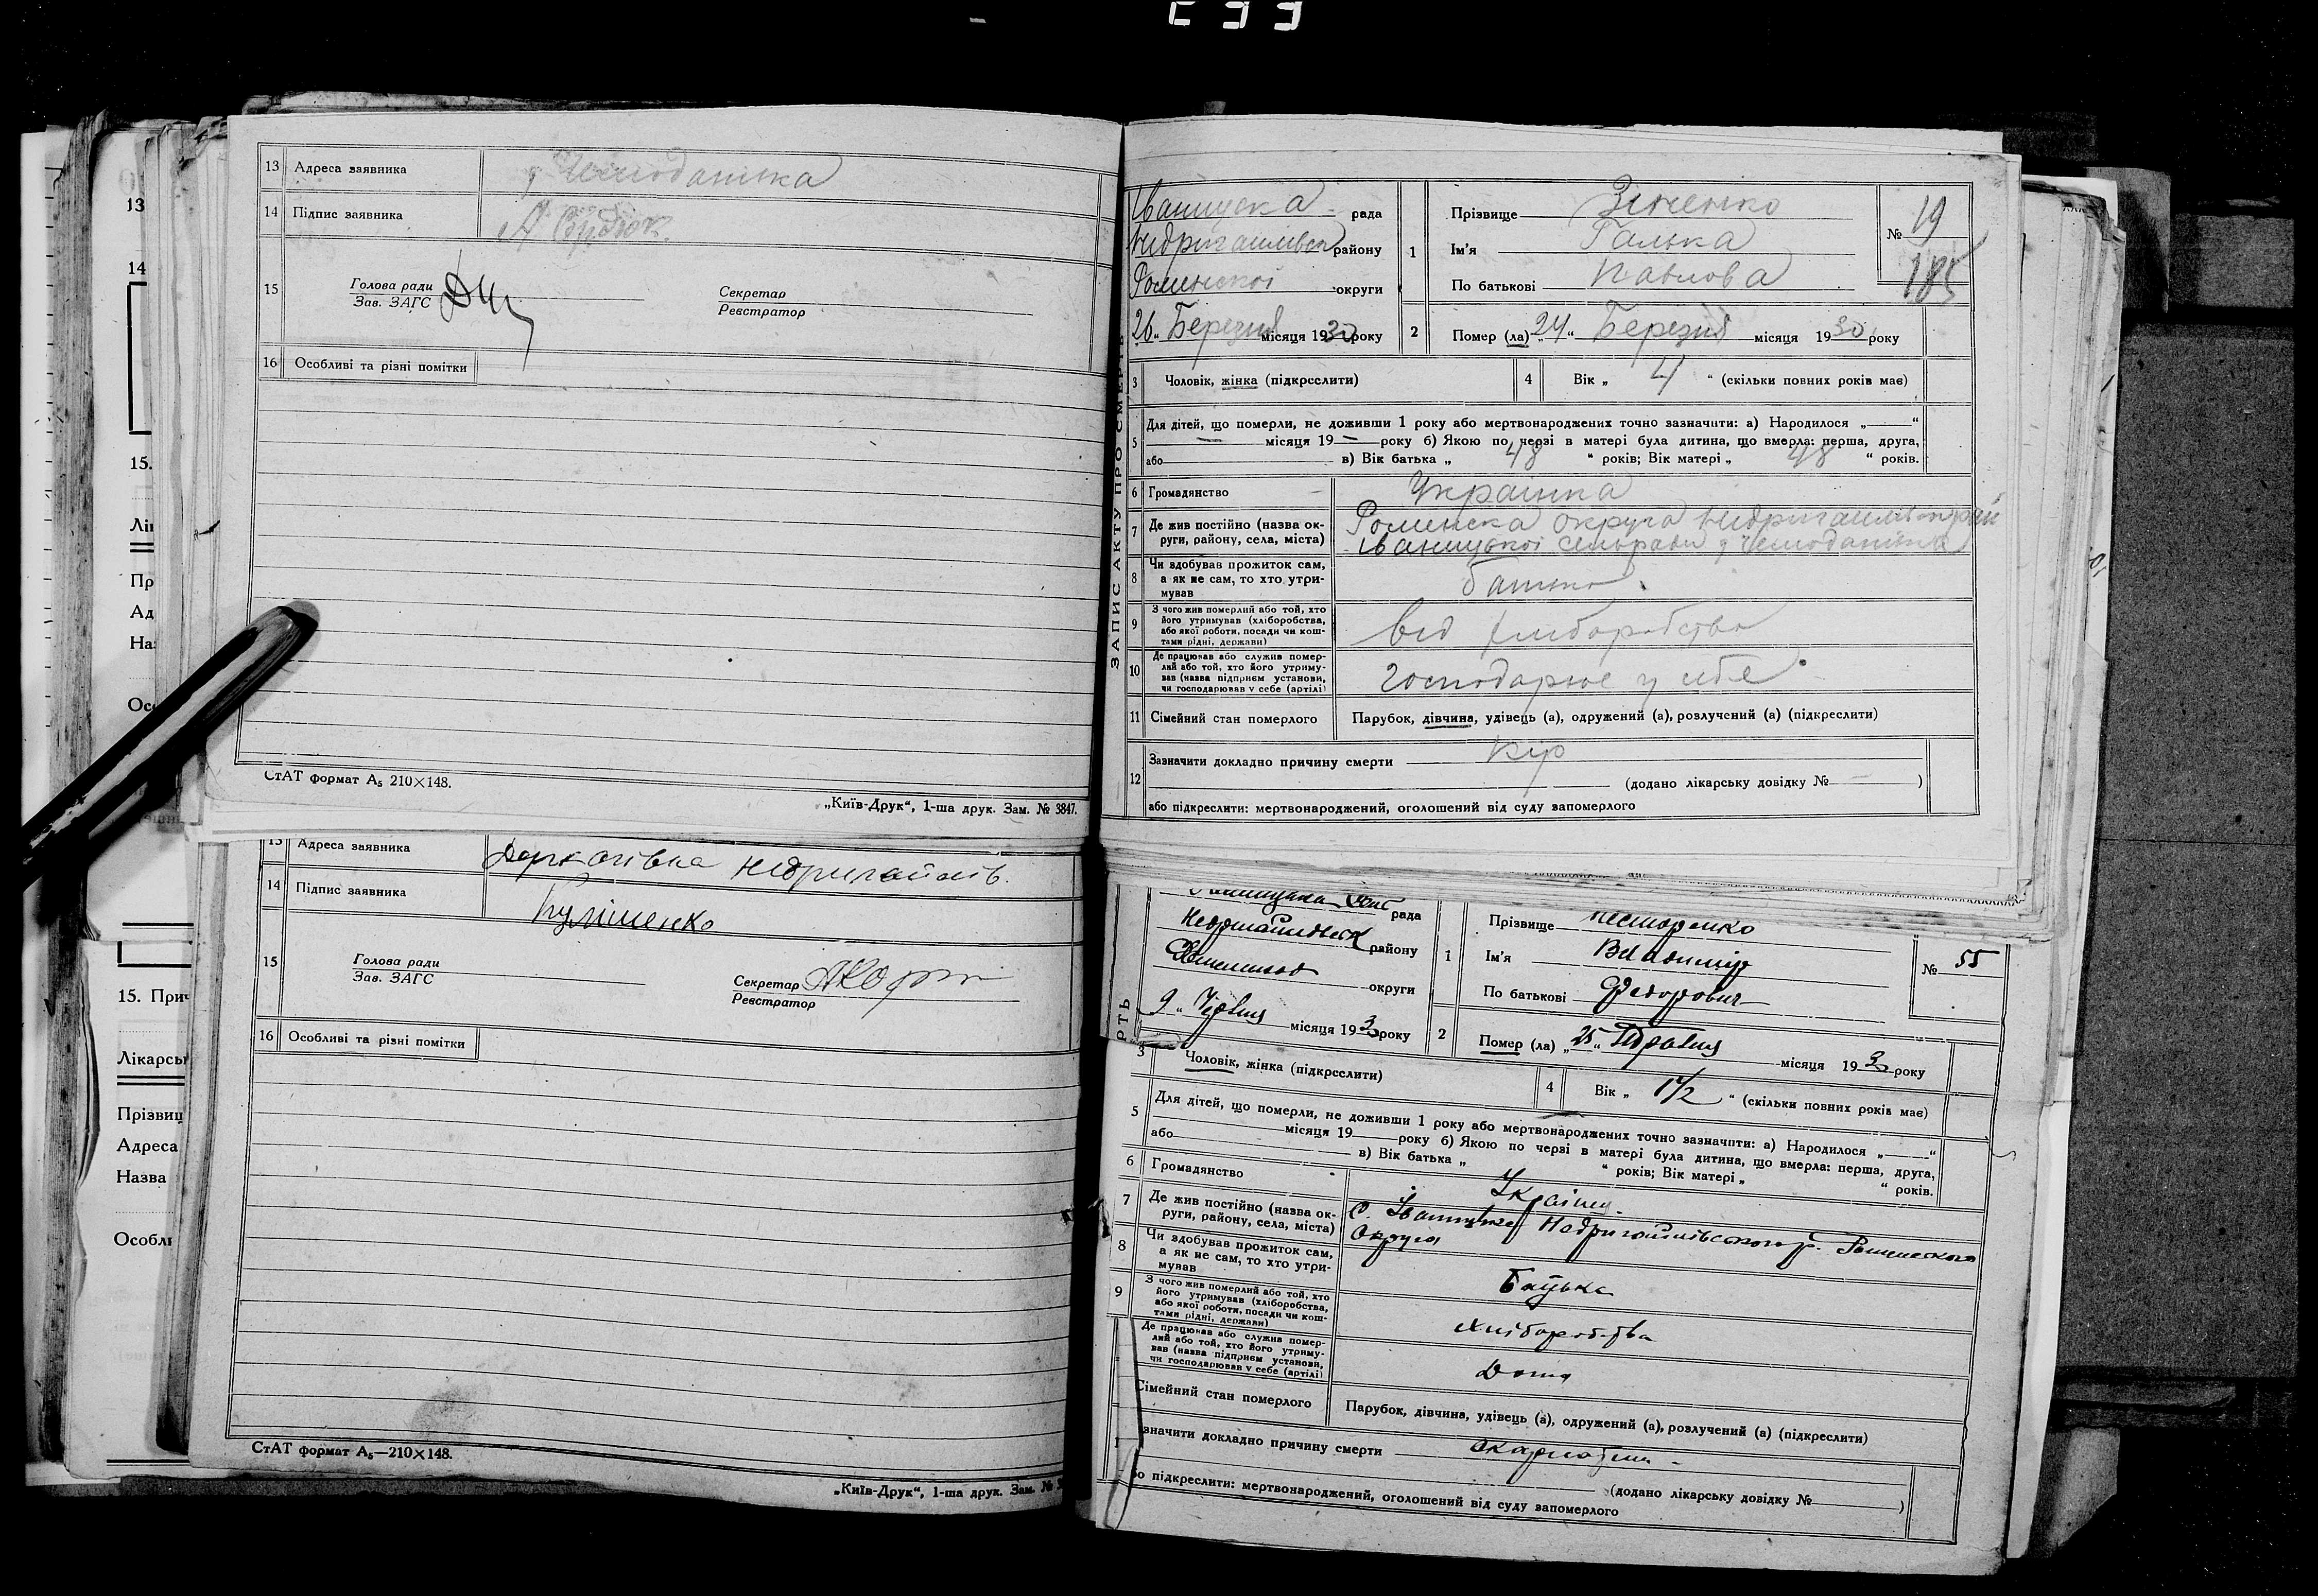 13 Адреса заявника
14 Підпис заявника
15 Голова ради Секретар
Зав. ЗАГС Реєстратор
16 Особливі та різні помітки
СтАТ формат А₅ 210×148.
„Київ-Друк“, 1-ша друк. Зам. № 3847.
13 Адреса заявника
14 Підпис заявника Куліменко
15 Голова ради Секретар
Зав. ЗАГС Реєстратор
16 Особливі та різні помітки
СтАТ формат А₅—210×148.
„Київ-Друк“, 1-ша друк. Зам. №
13
14
15.
Лі
Пр
Ад
На
Ос
15. Прич
Лікарсь
Прізвищ
Адреса
Назва
Особл
ЗАПИС АКТУ ПРО СМЕРТЬ
рада
району
Роменскої округи
26 „ Березня місяця 1930 року
1 Прізвище Зінченко
Ім'я Галька
По батькові Павлова
№ 19
185
2 Помер (ла) „24“ Березня місяця 1930 року
3 Чоловік, жінка (підкреслити)
4 Вік „ 4 “ (скільки повних років має)
5 Для дітей, що померли, не доживши 1 року або мертвонароджених точно зазначити: а) Народилося „ “
— місяця 19 — року б) Якою по черзі в матері була дитина, що вмерла: перша, друга,
або в) Вік батька „ 48 “ років; Вік матері „ 48 “ років.
6 Громадянство Українка
7 Де жив постійно (назва округи, району, села, міста) Роменска округа
8 Чи здобував прожиток сам,
а як не сам, то хто утримував
батько
9 З чого жив померлий або той, хто
його утримував (хліборобства,
або якої роботи, посади чи коштами рідні, держави)
від хліборобства
10 Де працював або служив померлий або той, хто його утримував (назва підприєм установи,
чи господарював у себе (артілі)
господарює у себе
11 Сімейний стан померлого Парубок, дівчина, удівець (а), одружений (а), розлучений (а) (підкреслити)
12 Зазначити докладно причину смерти Кір
(додано лікарську довідку № )
або підкреслити: мертвонароджений, оголошений від суду запомерлого
РТЬ
рада
району
округи
9 „ Червня місяця 193 року
1 Прізвище Нестеренко
Ім'я Владимир
По батькові Федорович
№ 55
2 Помер (ла) „25“ Травня місяця 193 року
3 Чоловік, жінка (підкреслити)
4 Вік „ 1 1/2 “ (скільки повних років має)
5 Для дітей, що померли, не доживши 1 року або мертвонароджених точно зазначити: а) Народилося „ “
місяця 19 року б) Якою по черзі в матері була дитина, що вмерла: перша, друга,
або в) Вік батька „ “ років; Вік матері „ “ років.
6 Громадянство
7 Де жив постійно (назва округи, району, села, міста) Округа
8 Чи здобував прожиток сам,
а як не сам, то хто утримував
Батька
9 З чого жив померлий або той, хто
його утримував (хліборобства,
або якої роботи, посади чи коштами рідні, держави)
Хліборобства
Де працював або служив померлий або той, хто його утримував (назва підприєм установи,
чи господарював у себе (артілі)
Дома
Сімейний стан померлого Парубок, дівчина, удівець (а), одружений (а), розлучений (а) (підкреслити)
значити докладно причину смерти Скарлатина
(додано лікарську довідку № )
бо підкреслити: мертвонароджений, оголошений від суду запомерлого